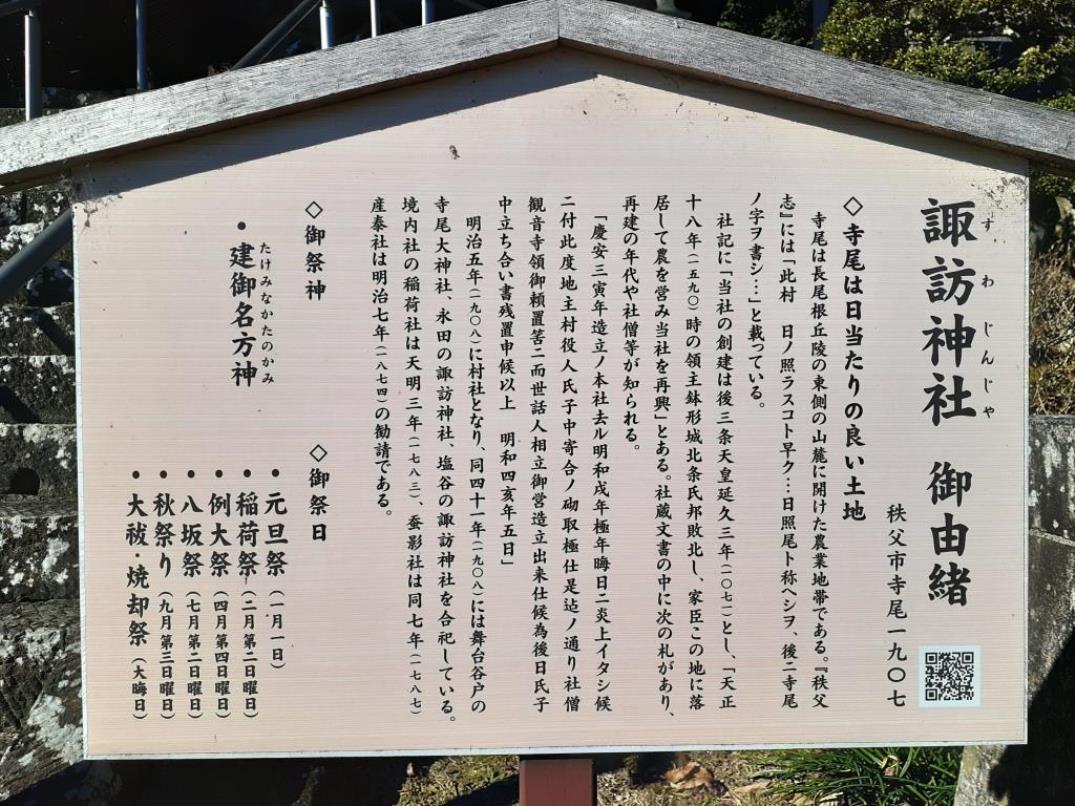 諏訪神社　御由緒
すわじんじゃ
秩父市寺尾一九〇七
◇寺尾は日当たりの良い土地
寺尾は長尾根丘陵の東側の山麓に開けた農業地帯である。『秩父
志』には「此村　日ノ照ラスコト早ク…日照尾ト称ヘシヲ、後ニ寺尾
ノ字ヲ書シ…」と載っている。
社記に「当社の創建は後三条天皇延久三年（一〇七一）とし、「天正
十八年（一五九〇）時の領主鉢形城北条氏邦敗北し、家臣この地に落
居して農を営み当社を再興」とある。社蔵文書の中に次の札があり、
再建の年代や社僧等が知られる。
「慶安三寅年造立ノ本社去ル明和戌年極年晦日ニ炎上イタシ候
ニ付此度地主村役人氏子中寄合ノ砌取極仕是迠ノ通り社僧
観音寺領御頼置筈ニ而世話人相立御営造立出来仕候為後日氏子
中立ち合い書残置申候以上　明和四亥年五日」
明治五年（一九〇八）に村社となり、同四十一年（一九〇八）には舞台谷戸の
寺尾大神社、永田の諏訪神社、塩谷の諏訪神社を合祀している。
境内社の稲荷社は天明三年（一七八三）、蚕影社は同七年（一七八七）
産泰社は明治七年（一八七四）の勧請である。
◇御祭神
・建御名方神
たけみなかたのかみ
◇御祭日
・元旦祭（一月一日）
・稲荷祭（二月第二日曜日）
・例大祭（四月第四日曜日）
・八坂祭（七月第二日曜日）
・秋祭り（九月第三日曜日）
・大祓・焼却祭（大晦日）